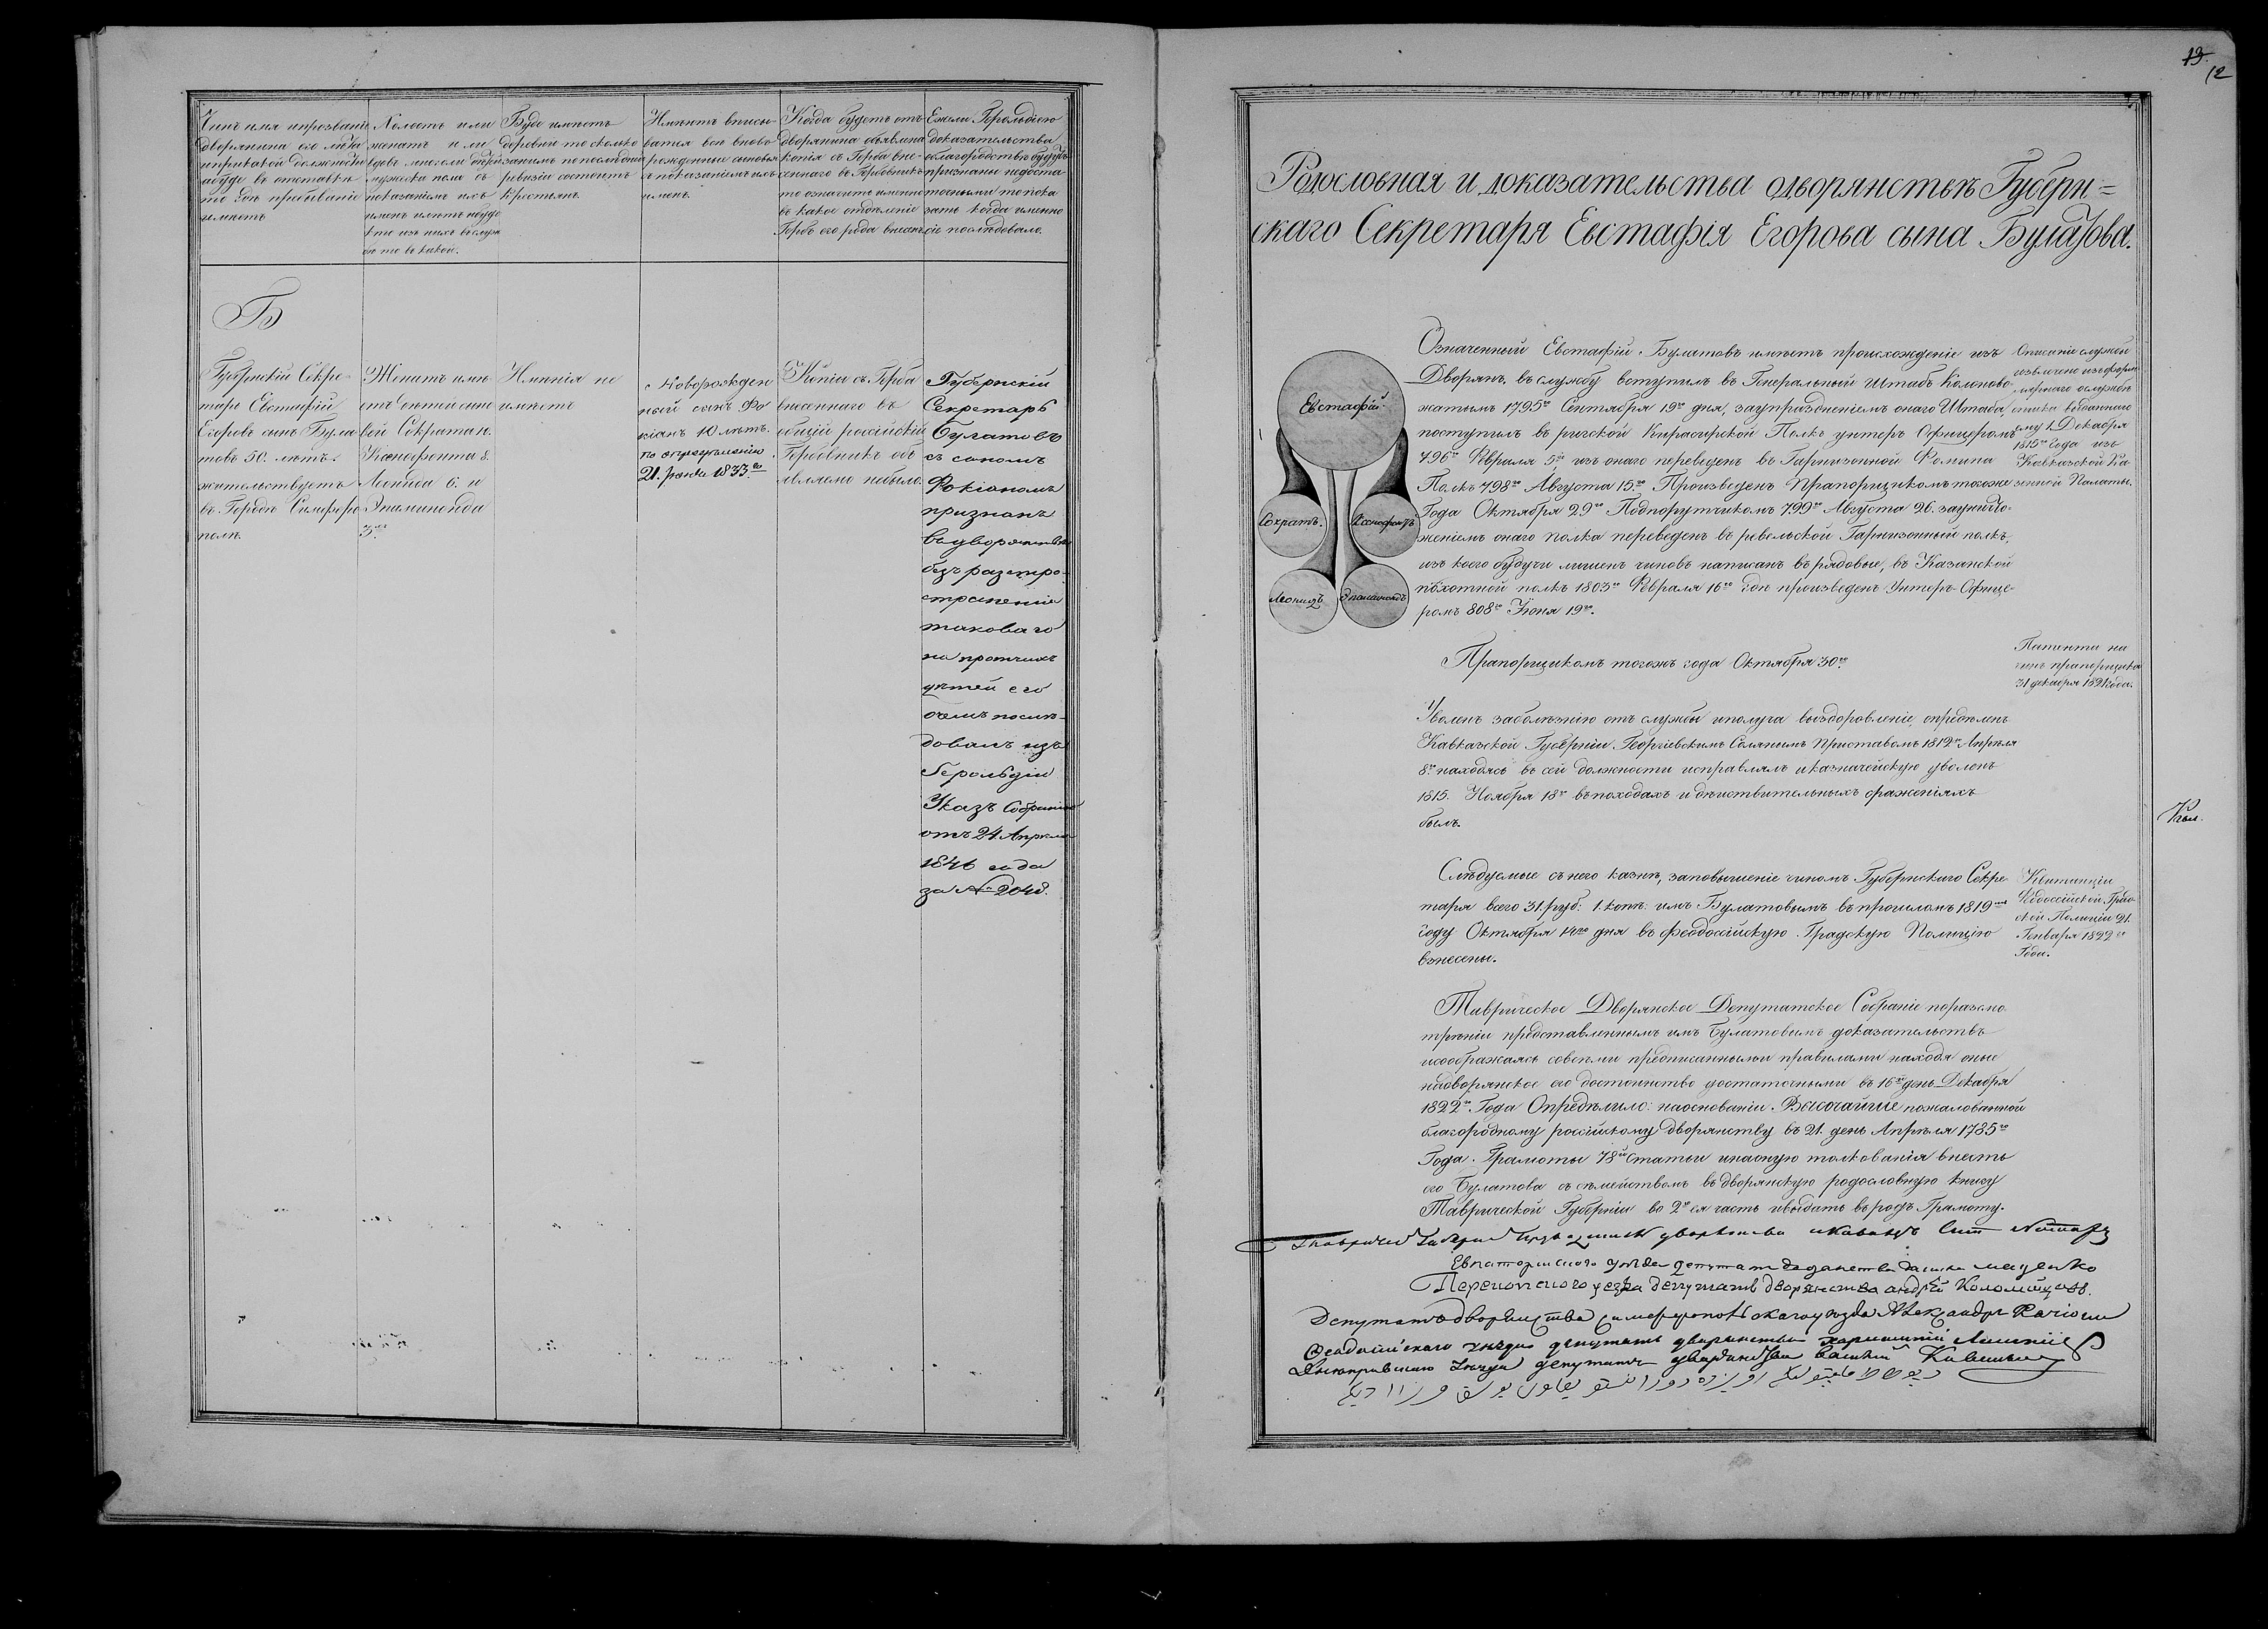 13.
12
Чинъ имя ипрозваніе
дворянина его лѣта
иприкакой должности
абуде въ отставкѣ
то гдѣ пребываніе
имѣетъ
Холостъ или
женатъ или
вдовъ многоли дѣтей
мужеска пола съ
показаніемъ ихъ
именъ имѣетъ ибуде
кто изъ нихъ въслуж
бѣ то въ какой.
Буде имѣетъ
деревни то сколько
занимъ попослѣдней
ревизіи состоитъ
Крестьянъ
Имѣютъ вписы-
ватся всѣ вновь
рожденные сыновья
съ показаніемъ ихъ
именъ.
Когда будетъ отъ
дворянина объявлена
копія съ Герба вне-
сеннаго въ Гербовникъ
то означить именно
въ какое отдѣленіе
Гербъ его рода внесенъ
Ежели Герольдіею
доказательства
облагородствѣ будутъ
признаны недоста
точными то пока
зать когда именно
сіе послѣдовало.
Б
Губернскій Секре-
тарь Евстафій
Егоровъ сынъ Була
товъ 50. лѣтъ.
жительствуетъ
въ Городѣ Симферо
полѣ.
Женатъ имѣ
етъ дѣтей сыно
вей Сократа 10.
Ксенофонта 8.
Леонида 6. и
Эпаминонда
3хъ
Имѣнія не
имѣетъ
Новорожден
ный сынъ Фо
кіанъ 10 лѣтъ.
по опредѣленію
21. 1833го
Копіи съ Герба
внесеннаго въ
общій россійскій
Гербовникъ объ
явлено небыло.
Губернскій
Секретарь
Булатовъ
съ сыномъ
Фокіаномъ
признанъ
въдворянствѣ
безъ разпро-
страненія
таковаго
на протчихъ
дѣтей его
очемъ послѣ-
довалъ изъ
Герольдіи
Указъ Собранію
отъ 24 Апрѣля
1846 года
за № 2048.
Родословная и доказательства одворянствѣ Губерн=
скаго Секретаря Евстафія Егорова сына Булатова.
Евстафій
Сократъ.
Ксенофонтъ
Леонидъ
Эпаминондъ
Означенный Евстафій Булатовъ имѣетъ происхожденіе изъ
Дворянъ, въ службу вступилъ въ Генеральный Штабъ Колоново-
жатымъ 1795го Сентября 19го дня, заупраздненіемъ онаго Штаба,
поступилъ въ рижской Кирасирской Полкъ унтеръ Офицеромъ
796го Февраля 5го изъ онаго переведенъ въ Гарнизонной Фомина
Полкъ 798го Августа 15го Произведенъ Прапорщикомъ тогоже
Года Октября 29го Подпорутчикомъ 799го Августа 26. зауничто-
женіемъ онаго полка переведенъ въ ревельской Гарнизонный полкъ,
изъ коего будучи лишенъ чиновъ написанъ въ рядовые, въ Казанской
пѣхотной полкъ 1803го Февраля 16го гдѣ произведенъ Унтеръ-Офице-
ромъ 808го Іюня 19го.
Описаніе службы
извлечено изъформ
лярнаго ослужбѣ
списка выданнаго
ему 1. Декабря
1815го Года изъ
Кавказской Ка
зенной Палаты.
Прапорщикомъ тогожъ года Октября 30го
Патентъ на
чинъ прапорщика
31 декабря 1821 года.
Уволенъ заболѣзнію отъ службы иполуча выздоровленіе, опредѣленъ
Кавказской Губерніи Георгіевскимъ Солянымъ Приставомъ 1812го Апреля
8го находясь въ сей должности исправлялъ иказначейскую уволенъ
1815. Ноября 18го въпоходахъ и дѣиствительныхъ сраженіяхъ
былъ.
Слѣдуемые снего казнѣ, заповышеніе чиномъ Губернскаго Секре
таря всего 31 руб: 1. копѣ: имъ Булатовымъ въ прошломъ 1819мъ
Году Октября 14го дня въ Феодосійскую Градскую Полицію
взнесены.
Квитанціи
Ѳеодосійской Град
ской Полиціи 21.
Генваря 1822го
Года.
Таврическое Дворянское Депутатское Собраніе поразсмо
трѣніи представленнымъ имъ Булатовымъ доказательствъ
исоображаясь совсѣми предписанными правилами находя оные
надворянское его достоинство достаточными въ 16й день Декабря
1822го Года Опредѣлило: наоснованіи Высочайше пожалованной
благородному россійскому дворянству въ 21. день Апрѣля 1785го
Года Грамоты 78ой Статьи инаоную толкованія внесть
его Булатова съ сѣмействомъ въдворянскую родословную книгу
Таврической Губерніи во 2ю ея часть ивыдать въродъ Грамоту.
дворянства
Перекопскаго уезда депутатъ дворянства андрей Коломейцовъ.
Депутатъ дворянства симферопольскаго уѣзда Александръ
Феодосійскаго уѣзда депутатъ дворянства
Днепровскаго уѣзда депутатъ дворянства василий